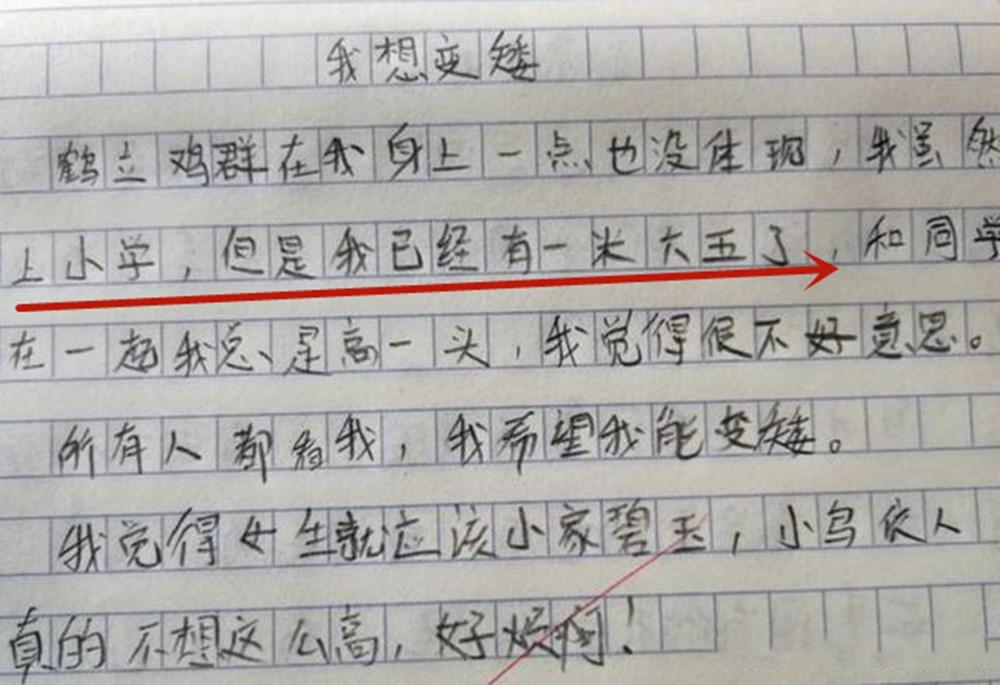 我想变矮
鹤立鸡群在我身上一点也没体现，我虽然
上小学，但是我已经有一米大五了，和同学
在一起我总是高一头，我觉得很不好意思。
所有人都看我，我希望我能变矮。
我觉得女生就应该小家碧玉，小鸟依人
真的不想这么高，好烦啊！